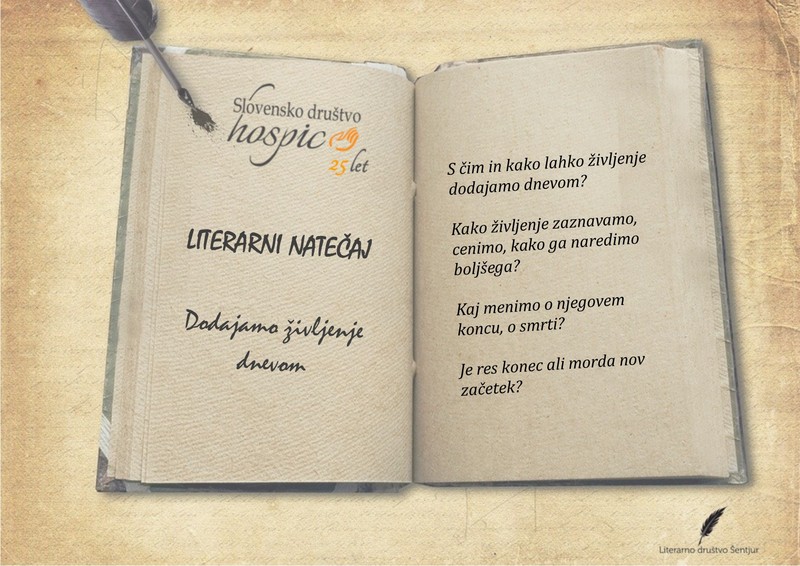 Slovensko društvo
hospic
25 let
LITERARNI NATEČAJ
Dodajamo življenje
dnevom
S čim in kako lahko življenje
dodajamo dnevom?
Kako življenje zaznavamo,
cenimo, kako ga naredimo
boljšega?
Kaj menimo o njegovem
koncu, o smrti?
Je res konec ali morda nov
začetek?
Literarno društvo Šentjur